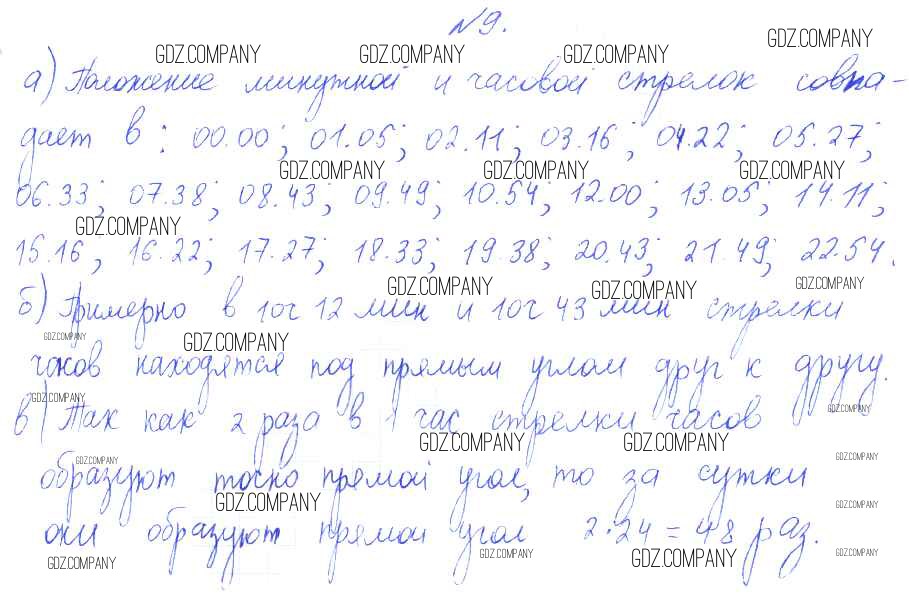 №9.
GDZ.COMPANY GDZ.COMPANY GDZ.COMPANY GDZ.COMPANY
а) Положение минутной и часовой стрелок совпа-
дает в: 00.00; 01.05; 02.11; 03.16; 04.22; 05.27;
GDZ.COMPANY GDZ.COMPANY GDZ.COMPANY
06.33; 07.38; 08.43; 09.49; 10.54; 12.00; 13.05; 14.11;
GDZ.COMPANY
15.16, 16.22; 17.27; 18.33; 19.38; 20.43; 21.49; 22.54.
GDZ.COMPANY GDZ.COMPANY GDZ.COMPANY
б) Примерно в 10ч 12 мин и 10ч 43 мин стрелки
GDZ.COMPANY GDZ.COMPANY
часов находятся под прямым углом друг к другу.
GDZ.COMPANY GDZ.COMPANY
в) Так как 2 раза в 1 час стрелки часов
GDZ.COMPANY GDZ.COMPANY GDZ.COMPANY GDZ.COMPANY
образуют прямой угол, то за сутки
GDZ.COMPANY GDZ.COMPANY
они образуют прямой угол 2·24=48 раз.
GDZ.COMPANY GDZ.COMPANY GDZ.COMPANY GDZ.COMPANY